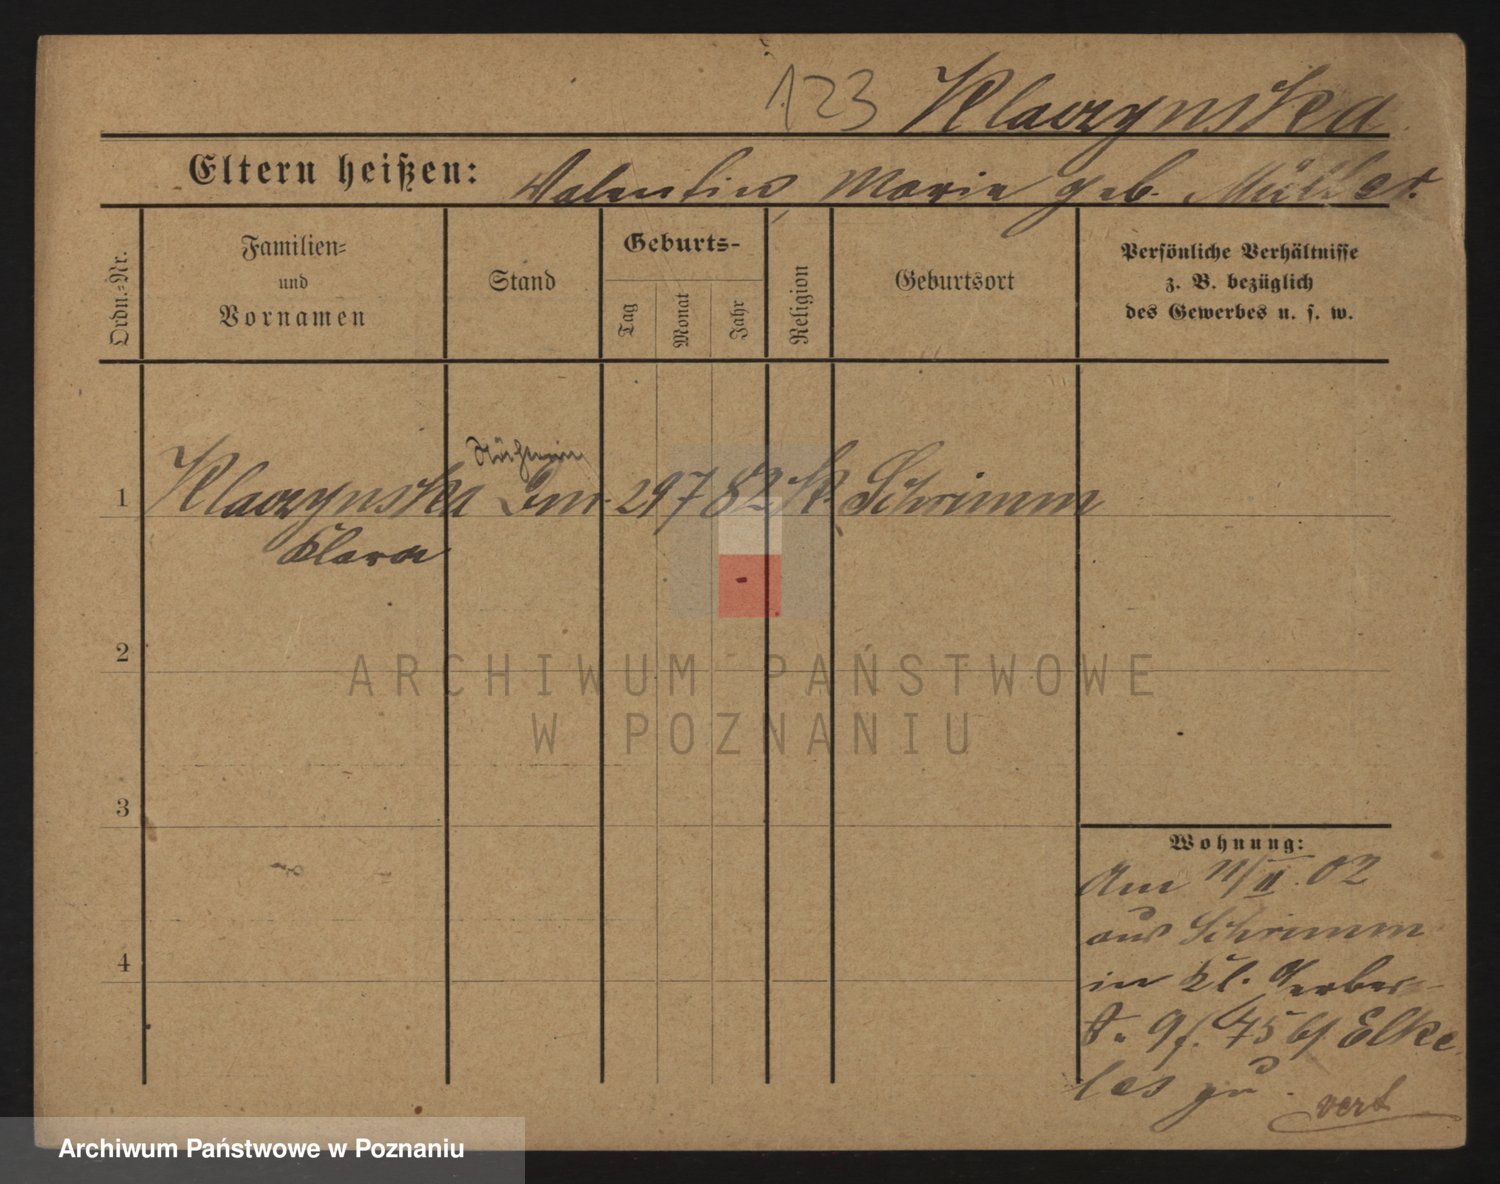 123 Klaczynska
Eltern heißen: Valentin, Marie geb. Müller.
Ordn.-Nr.
Familien- und Vornamen
Stand
Geburts-
Tag
Monat
Jahr
Religion
Geburtsort
Persönliche Verhältnisse
z. B. bezüglich
des Gewerbes u. s. w.
1 Klaczynska 29 7 82 k. Schrimm
Klara
2
3
4
ARCHIWUM PAŃSTWOWE
W POZNANIU
Wohnung:
Am 11/II. 02
aus Schrimm
in Kl. Gerber-
St. 9 f. b/ Elke
les zu.
vert
Archiwum Państwowe w Poznaniu